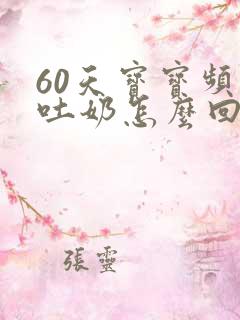 60天寶寶頻
吐奶怎麼回
張靈